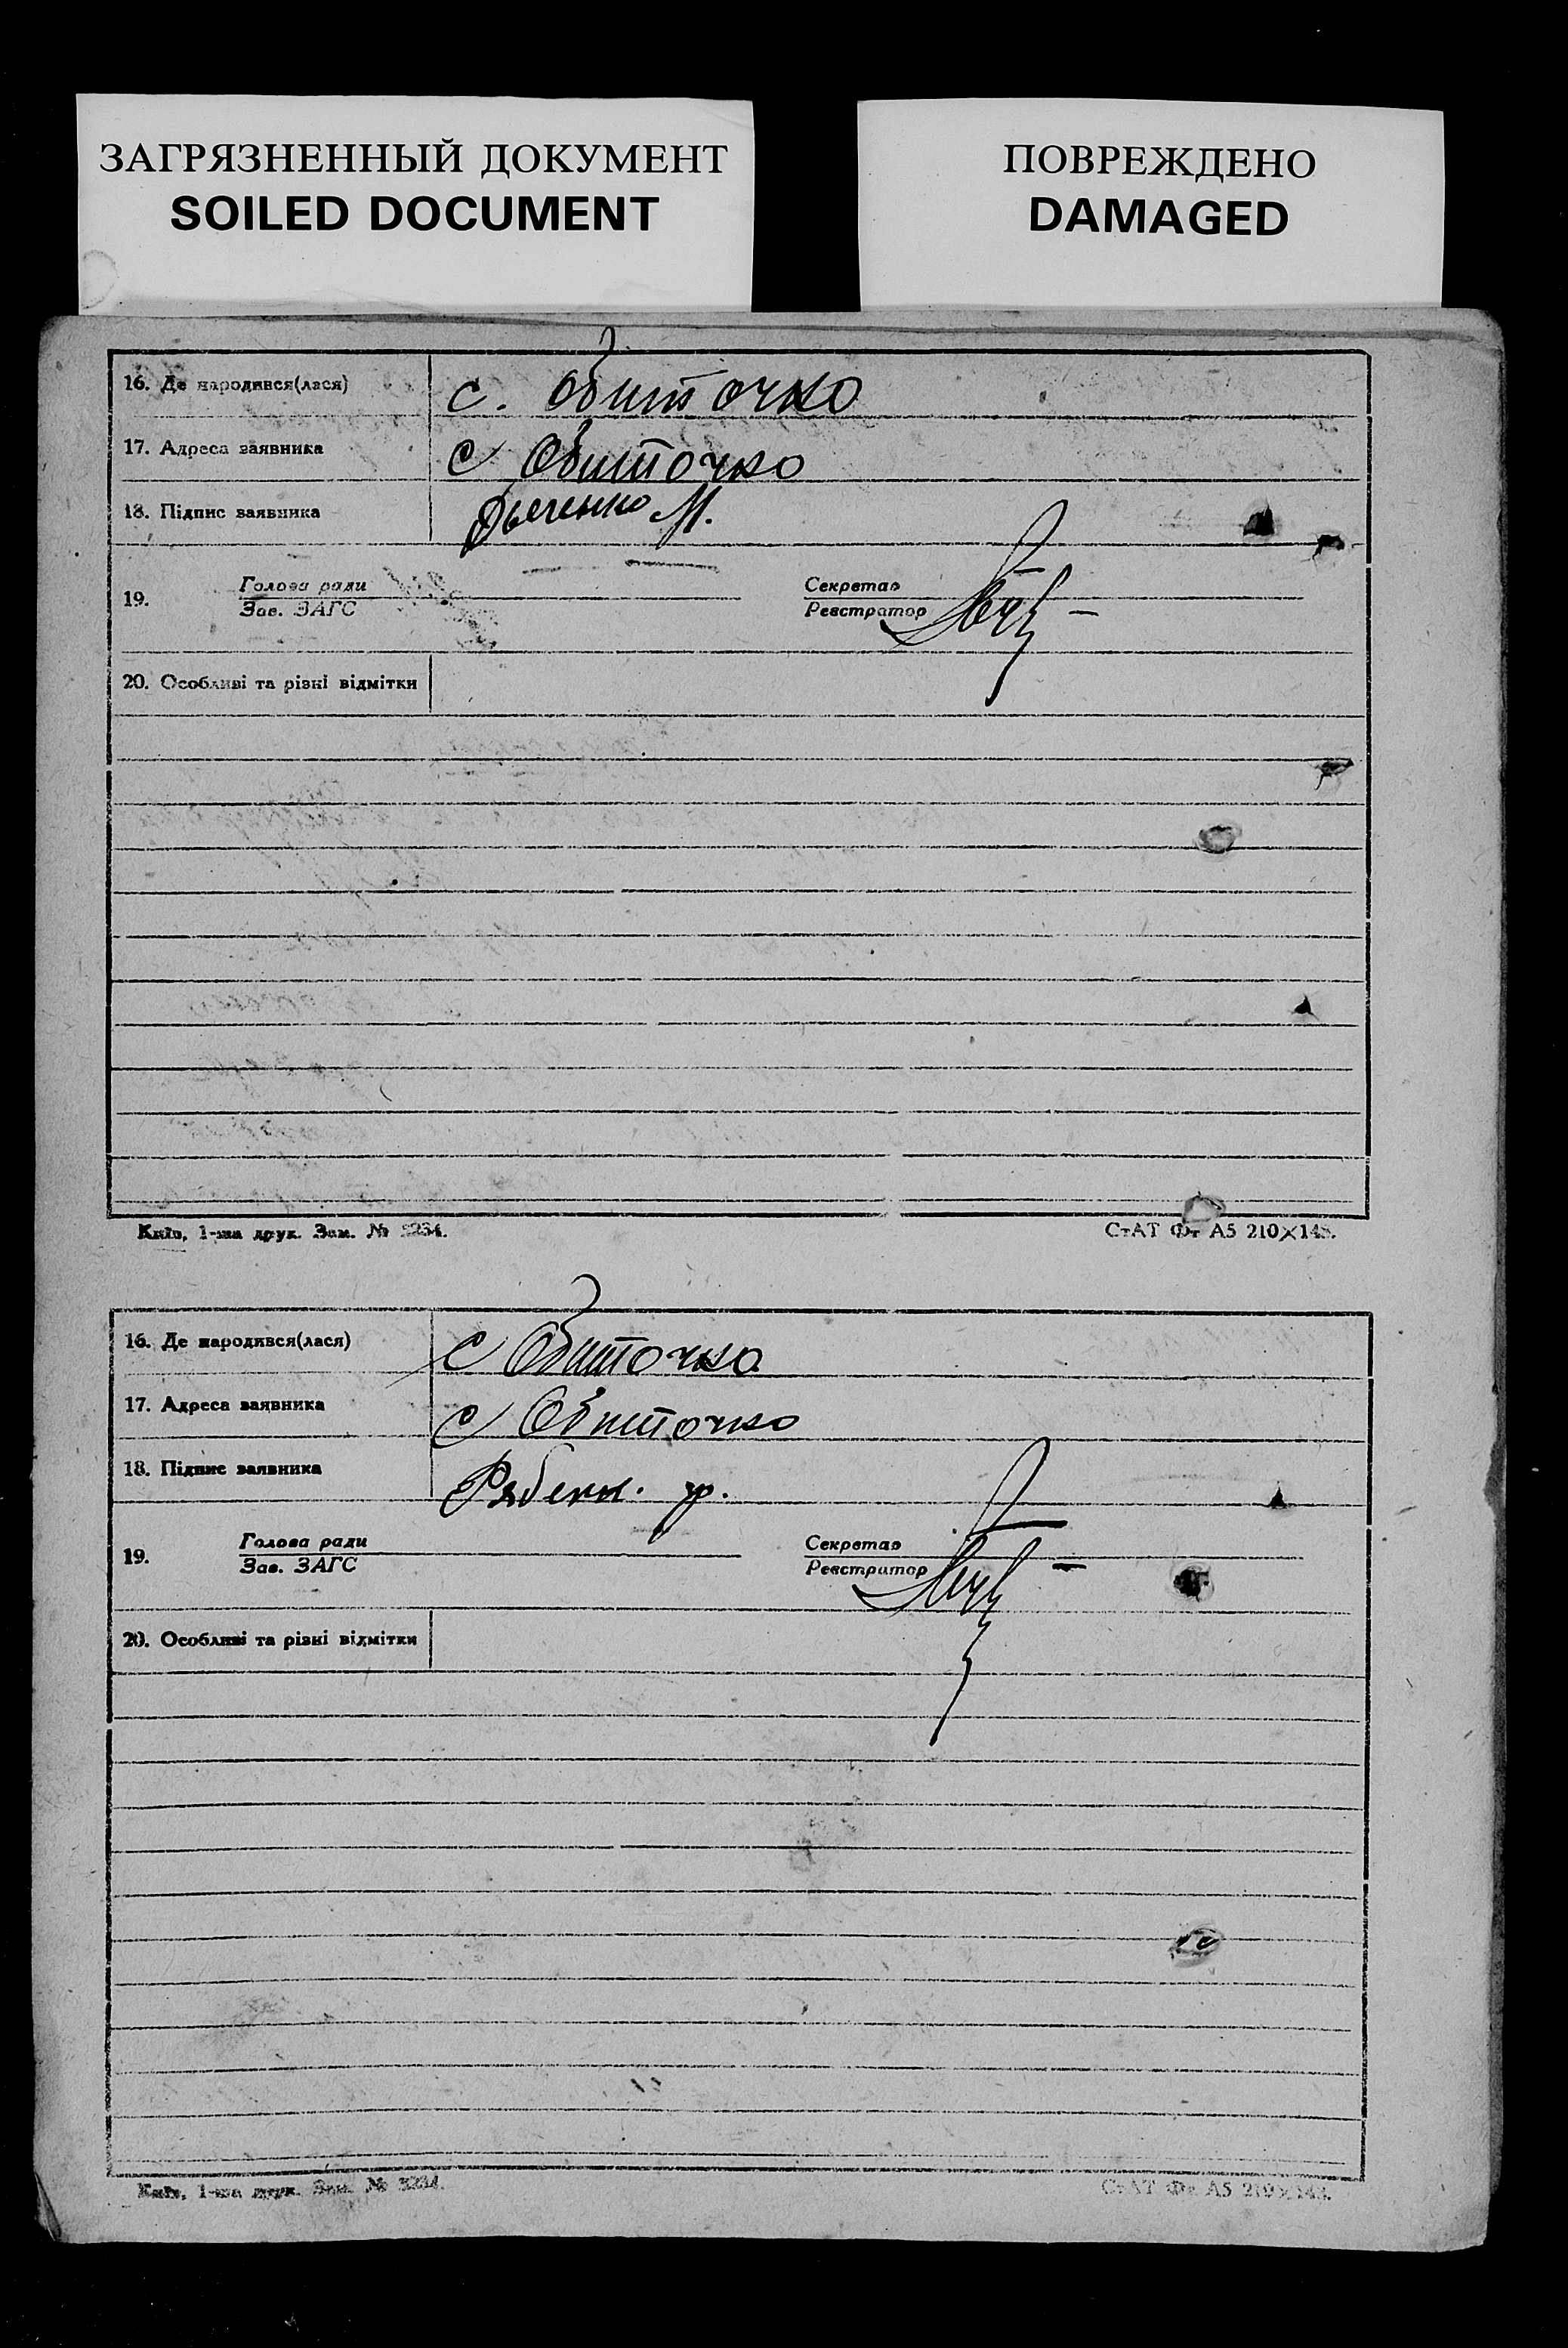 ЗАГРЯЗНЕННЫЙ ДОКУМЕНТ
SOILED DOCUMENT
ПОВРЕЖДЕНО
DAMAGED
16. Де народився(лася) с. Обиточко
17. Адреса заявника с Обиточко
18. Підпис заявника Дьяченко М.
19. Голова ради Секретар
Зав. ЗАГС Реєстратор
20. Особливі та різні відмітки
Київ, 1-ша друк. Зам. № 3234. СтАТ Фт А5 210×148.
16. Де народився(лася) с Обиточко
17. Адреса заявника с Обиточко
18. Підпис заявника
19. Голова ради Секретар
Зав. ЗАГС Реєстратор
20. Особливі та різні відмітки
Київ, 1-ша друк. Зам. № 3234. СтАТ Фт А5 210×148.